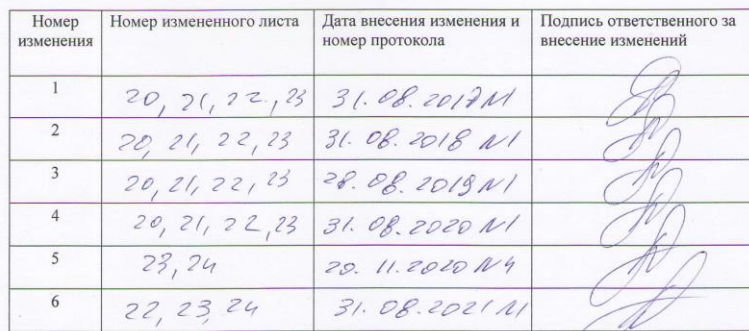 Номер изменения Номер измененного листа Дата внесения изменения и номер протокола Подпись ответственного за внесение изменений
1 20, 21, 22, 23 31.08.2017 №1
2 20, 21, 22, 23 31.08.2018 №1
3 20, 21, 22, 23 28.08.2019 №1
4 20, 21, 22, 23 31.08.2020 №1
5 23, 24 20.11.2020 №4
6 22, 23, 24 31.08.2021 №1